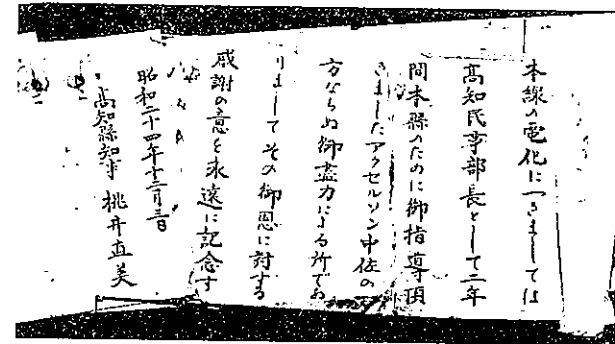 本線の電化につきましては
高知民事部長として二年
間本縣のために御指導頂
きましたアクセルソン中佐の
方ならぬ御盡力による所であ
りましてその御恩に対する
感謝の意を永遠に記念す
昭和二十四年十二月三日
高知縣知事 桃井直美